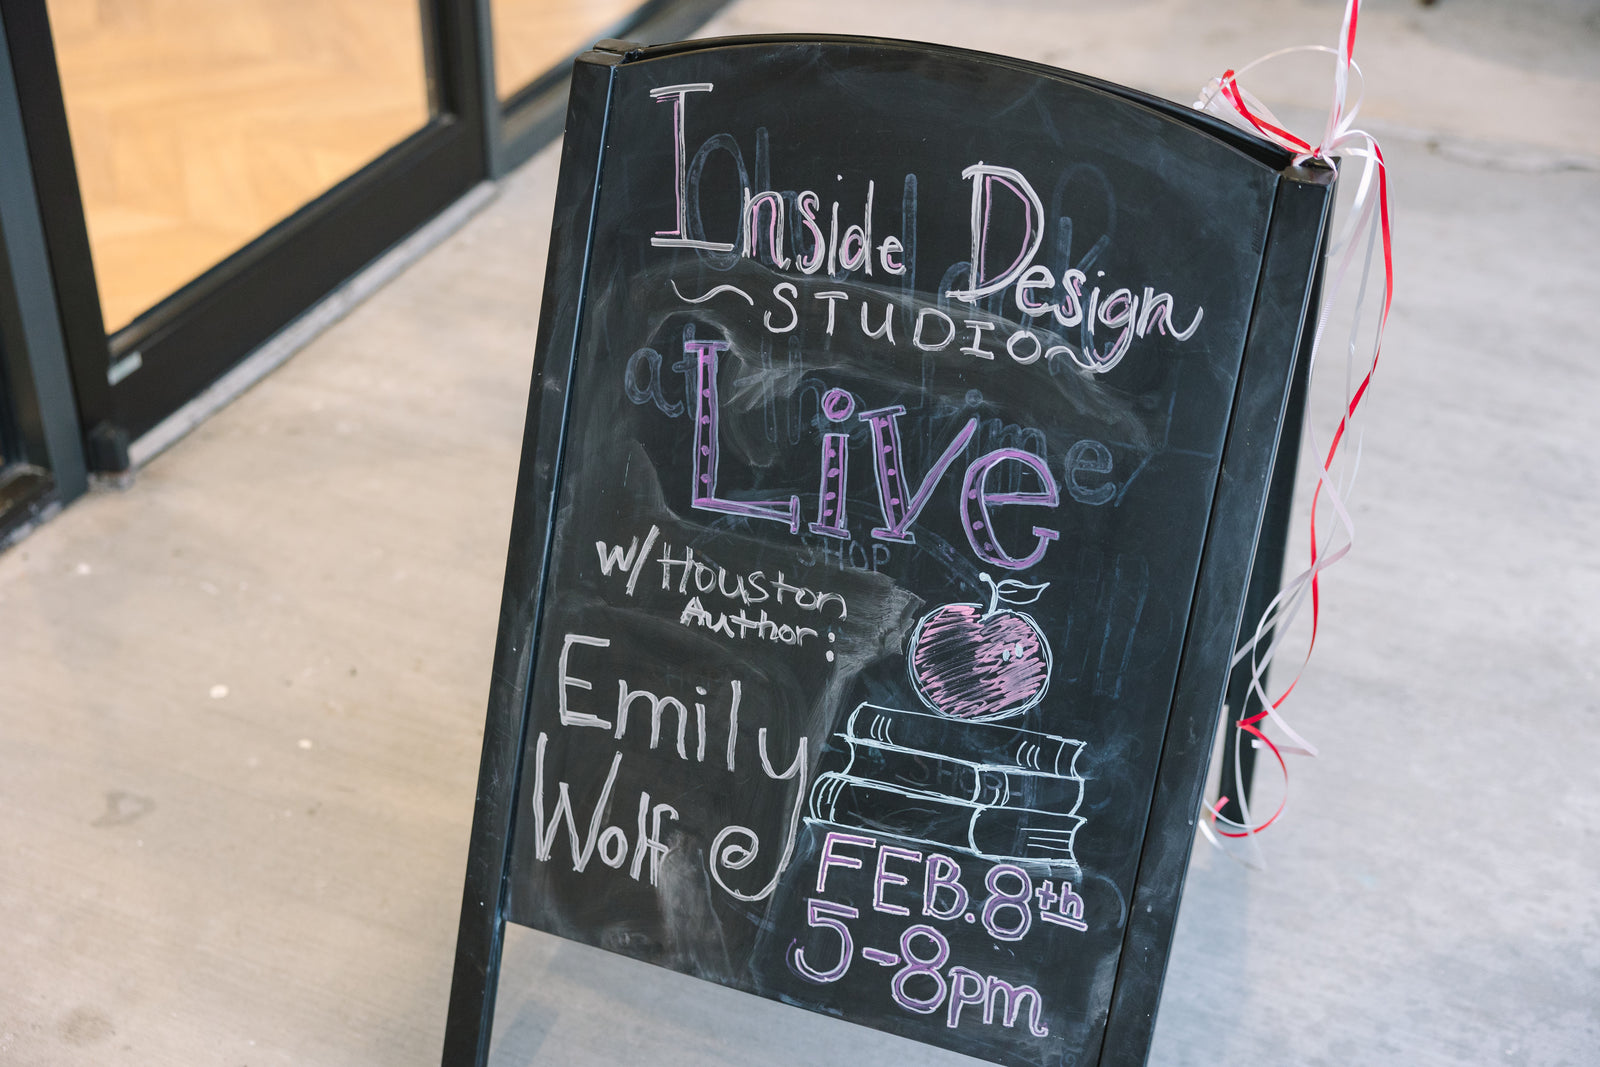 Inside Design
~STUDIO~
Live
W/Houston
Author:
Emily
Wolf
FEB. 8th
5-8pm
at
SHOP